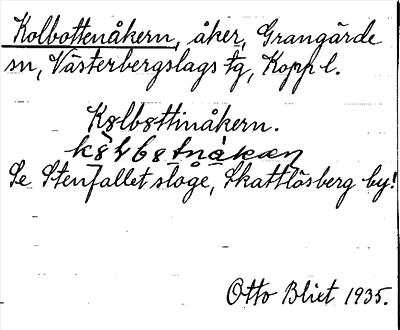 Kolbottenåkern, åker, Grangärde
sn, Västerbergslags tg, Kopp l.
Kȣlbȣttinåkern.
Se Stenfallet sloge, Skattlösberg by!
Otto Blixt 1935.